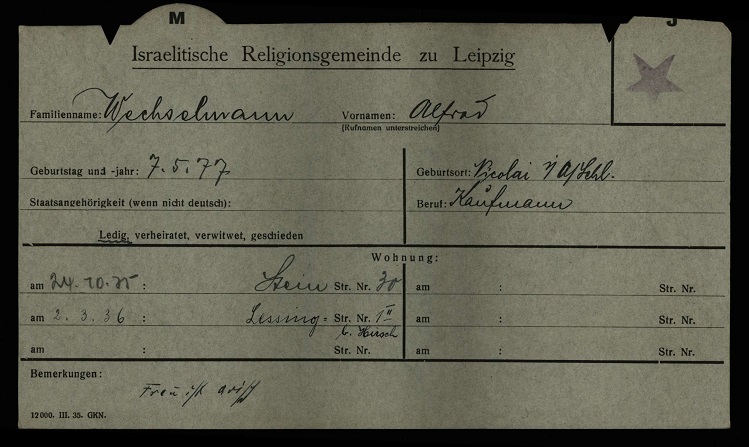 M J
Israelitische Religionsgemeinde zu Leipzig
Familienname: Wechselmann Vornamen: Alfred
(Rufnamen unterstreichen)
Geburtstag und -jahr: 7.5.77 Geburtsort: Nicolai i/O/Schl.
Staatsangehörigkeit (wenn nicht deutsch): Beruf: Kaufmann
Ledig, verheiratet, verwitwet, geschieden
Wohnung:
am 24.10.35 : Stein Str. Nr. 30 am : Str. Nr.
am 2.3.36 : Lessing= Str. Nr. 1 II am : Str. Nr.
b. Hirsch
am : Str. Nr. am : Str. Nr.
Bemerkungen: Frau ist arisch
12000. III. 35. GKN.